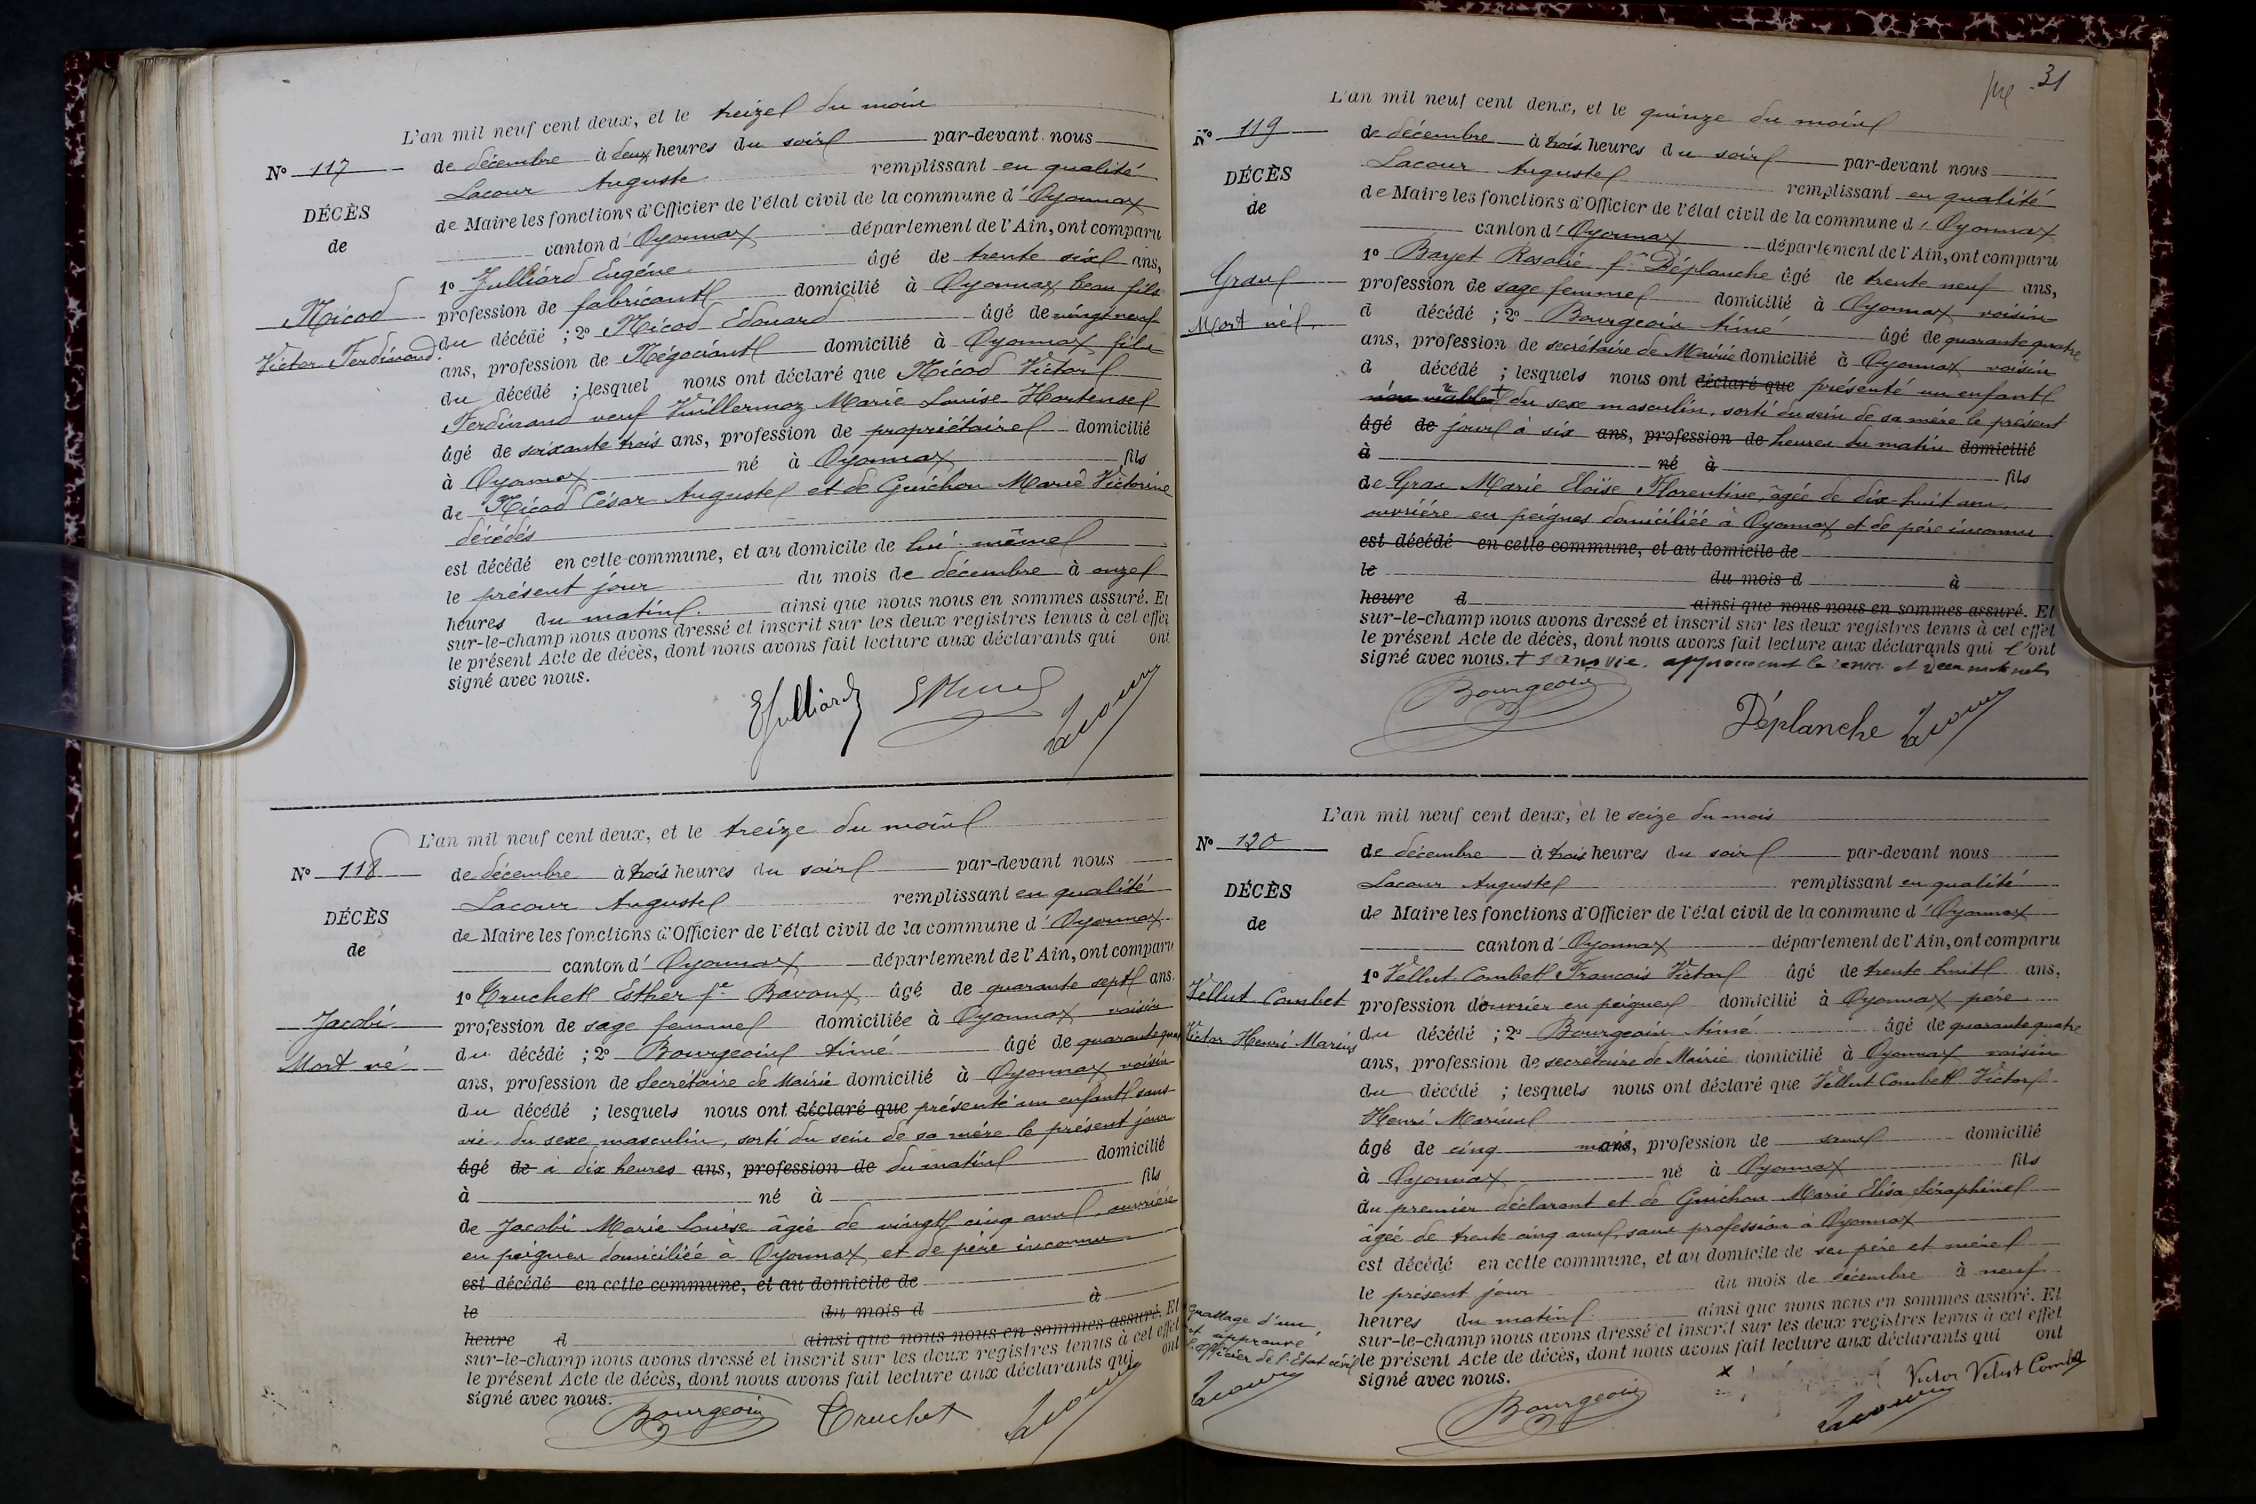 L'an mil neuf cent deux, et le treize du mois
N° 117 de décembre à deux heures du soir par-devant nous
Lacour Auguste remplissant en qualité
DÉCÈS de Maire les fonctions d'Officier de l'état civil de la commune d'Oyonnax
de canton d'Oyonnax département de l'Ain, ont comparu
1° Julliard Eugène âgé de trente six ans,
Nicod profession de fabricant domicilié à Oyonnax beau fils
Victor Ferdinand. du décédé ; 2° Nicod Edouard âgé de vingt neuf
ans, profession de Négociant domicilié à Oyonnax fils
du décédé ; lesquels nous ont déclaré que Nicod Victor
Ferdinand veuf Vuillermoz Marie Louise Hortense
âgé de soixante trois ans, profession de propriétaire domicilié
à Oyonnax né à Oyonnax fils
de Nicod César Auguste et de Guichon Marie Victorine
décédés
est décédé en cette commune, et au domicile de lui-même
le présent jour du mois de décembre à onze
heures du matin. ainsi que nous nous en sommes assuré. Et
sur-le-champ nous avons dressé et inscrit sur les deux registres tenus à cet effet
le présent Acte de décès, dont nous avons fait lecture aux déclarants qui ont
signé avec nous.
EJulliard Lacour
L'an mil neuf cent deux, et le treize du mois
N° 118 de décembre à trois heures du soir par-devant nous
Lacour Auguste remplissant en qualité
DÉCÈS de Maire les fonctions d'Officier de l'état civil de la commune d'Oyonnax
de canton d'Oyonnax département de l'Ain, ont comparu
1° Cruchet Esther fe Bavoux âgé de quarante sept ans.
Jacobi profession de sage femme domiciliée à Oyonnax voisin
Mort né du décédé ; 2° Bourgeois Aimé âgé de quarante quatre
ans, profession de Secrétaire de Mairie domicilié à Oyonnax voisin
du décédé ; lesquels nous ont déclaré que présenté un enfant sans
vie, du sexe masculin, sorti du sein de sa mère le présent jour
âgé de à dix heures ans, profession de du matin domicilié
à né à fils
de Jacobi Marie Louise âgée de vingt cinq ans, ouvrière
en peignes domiciliée à Oyonnax et de père inconnu
est décédé en cette commune, et au domicile de
le du mois d à
heure d ainsi que nous nous en sommes assuré. Et
sur-le-champ nous avons dressé et inscrit sur les deux registres tenus à cet effet
le présent Acte de décès, dont nous avons fait lecture aux déclarants qui ont
signé avec nous.
Bourgeois Cruchet Lacour
31
L'an mil neuf cent deux, et le quinze du mois
N° 119 de décembre à trois heures du soir par-devant nous
Lacour Auguste remplissant en qualité
DÉCÈS de Maire les fonctions d'Officier de l'état civil de la commune d'Oyonnax
de canton d'Oyonnax département de l'Ain, ont comparu
1° Bayet Rosalie fe Déplanche âgé de trente neuf ans,
Grau profession de sage femme domicilié à Oyonnax voisin
Mort né. d décédé ; 2° Bourgeois Aimé âgé de quarante quatre
ans, profession de secrétaire de Mairie domicilié à Oyonnax voisin
d décédé ; lesquels nous ont déclaré que présenté un enfant
non viable + du sexe masculin, sorti du sein de sa mère le présent
âgé de jour à six ans, profession de heures du matin domicilié
à né à fils
de Grau Marie Eloïse Florentine, âgée de dix-huit ans
ouvrière en peignes domiciliée à Oyonnax et de père inconnu
est décédé en cette commune, et au domicile de
le du mois d à
heure d ainsi que nous nous en sommes assuré. Et
sur-le-champ nous avons dressé et inscrit sur les deux registres tenus à cet effet
le présent Acte de décès, dont nous avons fait lecture aux déclarants qui l'ont
signé avec nous. + sans vie. approuvant le renvoi et deux mots nuls
Bourgeois Déplanche Lacour
L'an mil neuf cent deux, et le seize du mois
N° 120 de décembre à trois heures du soir par-devant nous
Lacour Auguste remplissant en qualité
DÉCÈS de Maire les fonctions d'Officier de l'état civil de la commune d'Oyonnax
de canton d'Oyonnax département de l'Ain, ont comparu
1° Vellut Combet Francois Victor âgé de trente huit ans,
Vellut Combet profession d'ouvrier en peignes domicilié à Oyonnax père
Victor Henri Marius du décédé ; 2° Bourgeois Aimé âgé de quarante quatre
ans, profession de secrétaire de Mairie domicilié à Oyonnax voisin
du décédé ; lesquels nous ont déclaré que Vellut Combet Victor
Henri Marius
âgé de cinq mois, profession de sans domicilié
à Oyonnax né à Oyonnax fils
du premier déclarant et de Guichon Marie Elisa Séraphine
âgée de trente cinq ans, sans profession à Oyonnax
est décédé en cette commune, et au domicile de ses père et mère
le présent jour du mois de décembre à neuf
heures du matin ainsi que nous nous en sommes assuré. Et
sur-le-champ nous avons dressé et inscrit sur les deux registres tenus à cet effet
le présent Acte de décès, dont nous avons fait lecture aux déclarants qui ont
signé avec nous.
grattage d'un
approuvé
officier de l'Etat civil
Lacour
Bourgeois Victor Velut Combet
Lacour